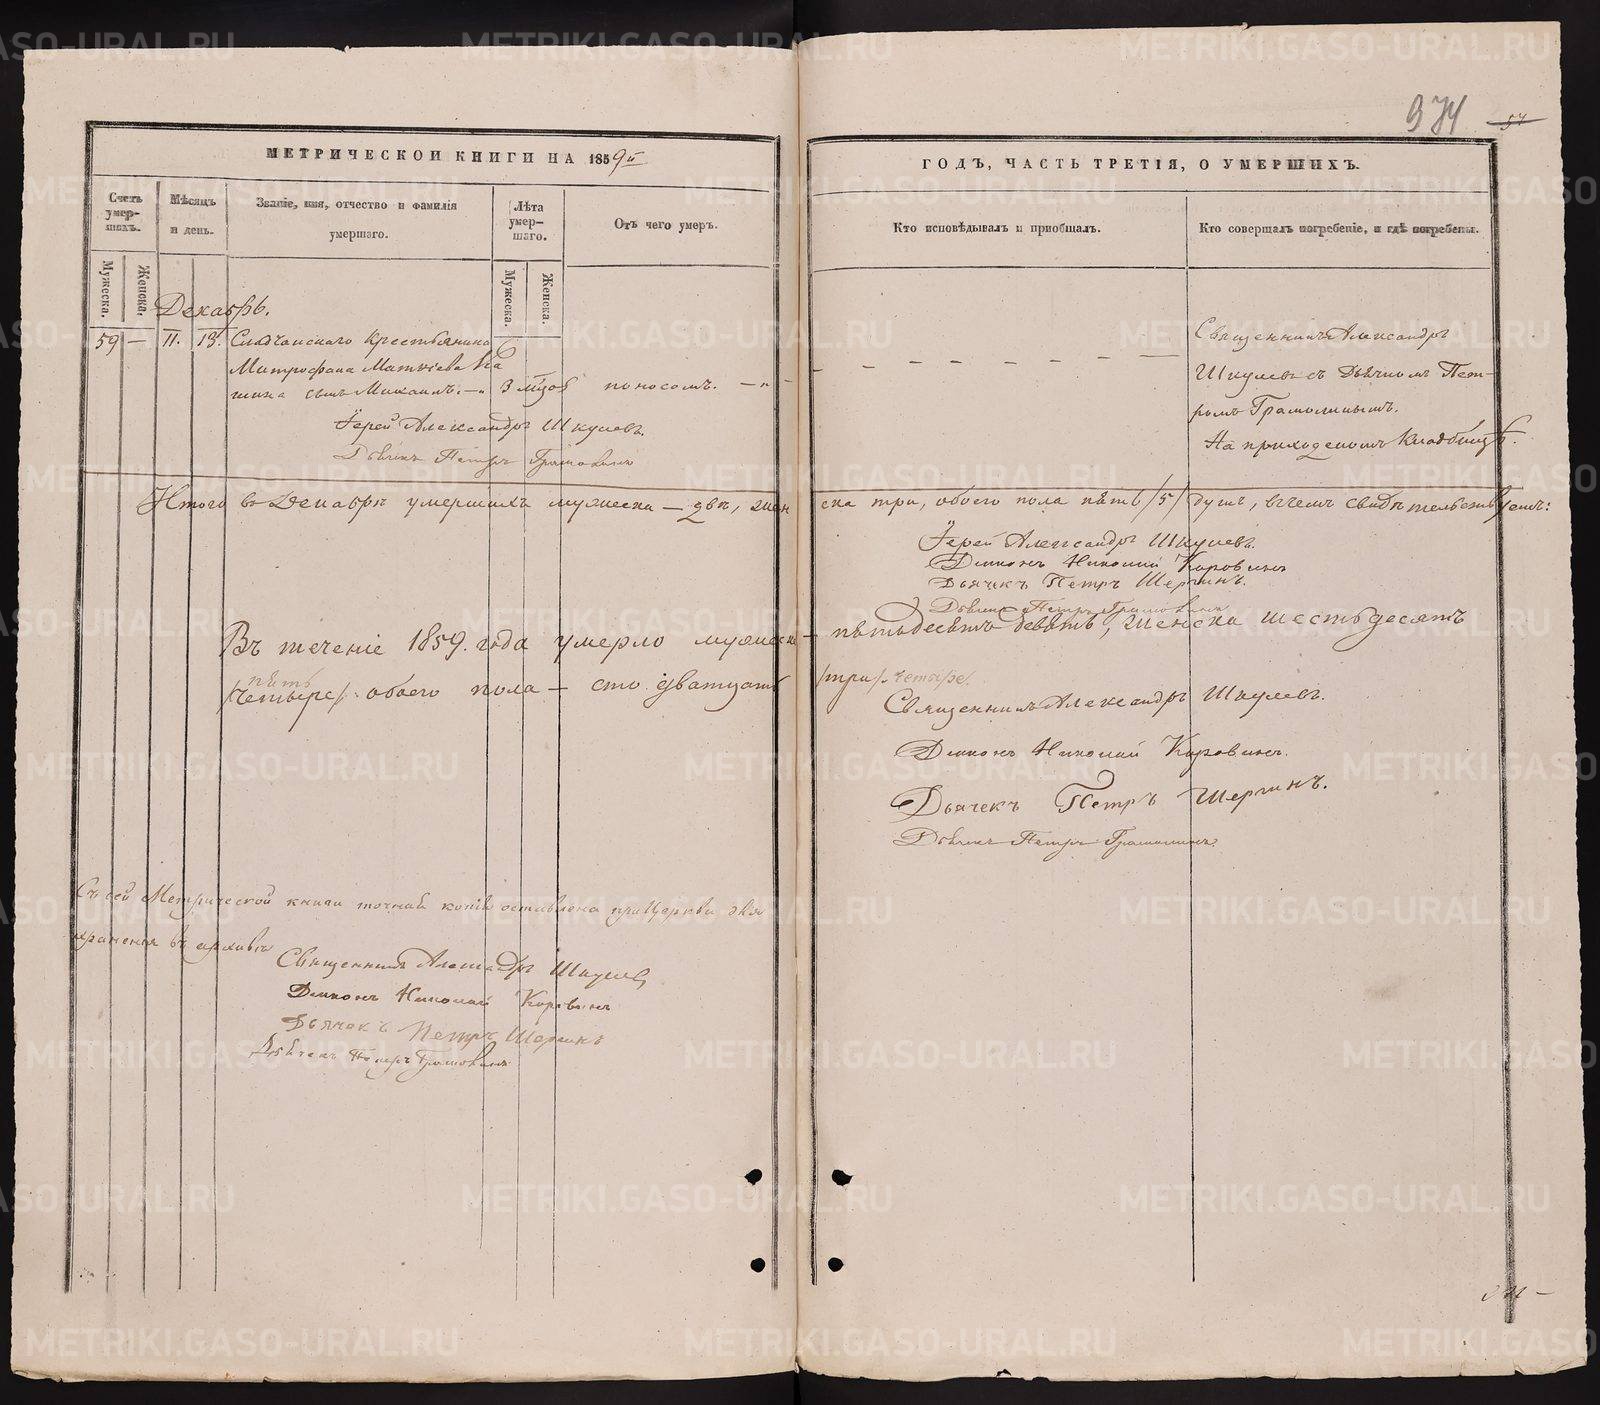 974 57
МЕТРИЧЕСКОЙ КНИГИ НА 1859й
ГОДЪ, ЧАСТЬ ТРЕТІЯ, О УМЕРШИХЪ.
Счетъ умер-шихъ.
Мѣсяцъ и день.
Званіе, имя, отчество и фамилія умершаго.
Лѣта умер-шаго.
Отъ чего умеръ.
Кто исповѣдывалъ и пріобщалъ.
Кто совершалъ погребеніе, и гдѣ погребены.
Мужеска.
Женска.
Мужеска.
Женска.
Декабрь.
59 — 11. 13. Крестьянина
Митрофана Матвѣева
сынъ Михаилъ. 3 мцов поносомъ.
Іерей Александръ Шкулевъ.
Дьячекъ Петръ
Священникъ Александръ
Шкулевъ съ Дьячкомъ Пет-
ромъ
На приходскомъ Кладбищѣ.
Итого въ Декабрѣ умершихъ мужеска — два, жен
ска три, обоего пола пять /5/ душъ, въ чемъ свидѣтельствуемъ:
Іерей Александръ Шкулевъ.
Діаконъ Николай Коровинъ
Дьячекъ Петръ Шергинъ.
Дьячекъ Петръ
Въ теченіе 1859. года умерло мужеска —
пятьдесятъ девять, женска шестьдесятъ
пять
/четыре/. обоего пола — сто дватцать
/три/. четыре.
Священникъ Александръ Шкулевъ.
Діаконъ Николай Коровинъ.
Дьячекъ Петръ Шергинъ.
Дьячекъ Петръ
Съ сей Метрической книги точная копія оставлена при Церкви для
храненія въ архивѣ
Священникъ Александръ Шкулевъ
Діаконъ Николай Коровинъ
Дьячекъ Петръ Шергинъ
Дьячекъ Петръ
METRIKI.GASO-URAL.RU